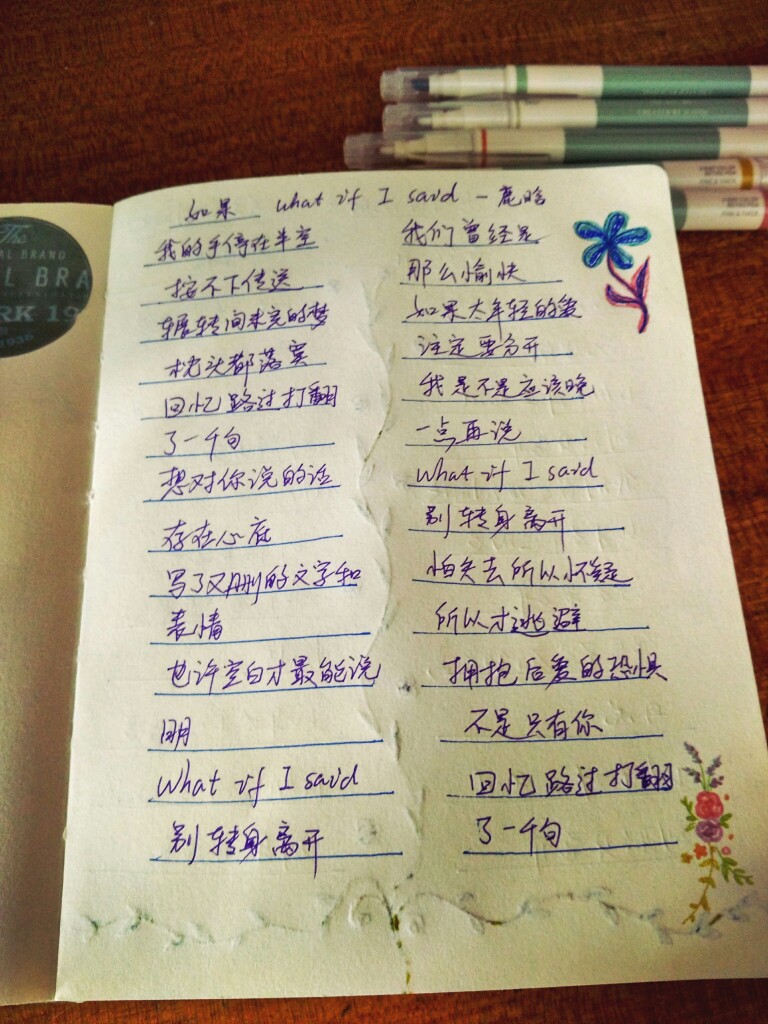 如果 what if I said - 鹿晗
我的手停在半空
按不下传送
辗转间未完的梦
枕头都落寞
回忆路过打翻
了一千句
想对你说的话
存在心底
写了又删的文字和
表情
也许空白才最能说
明
What if I said
别转身离开
我们曾经是
那么愉快
如果太年轻的爱
注定要分开
我是不是应该晚
一点再说
What if I said
别转身离开
怕失去所以怀疑
所以才逃避
拥抱后爱的恐惧
不是只有你
回忆路过打翻
了一千句
The
AL BRAND
L BRA
RK 19
1936